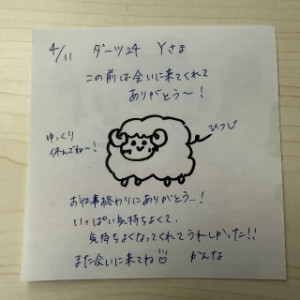 4/11 ダーツ24 Yさま
この前は会いに来てくれて
ありがとう〜!
ゆっくり
休んでね〜!
ひつじ
お仕事終わりにありがとう〜!
いっぱい気持ちよくて、
気持ちよくなってくれてうれしかった!!
また会いに来てね
かんな